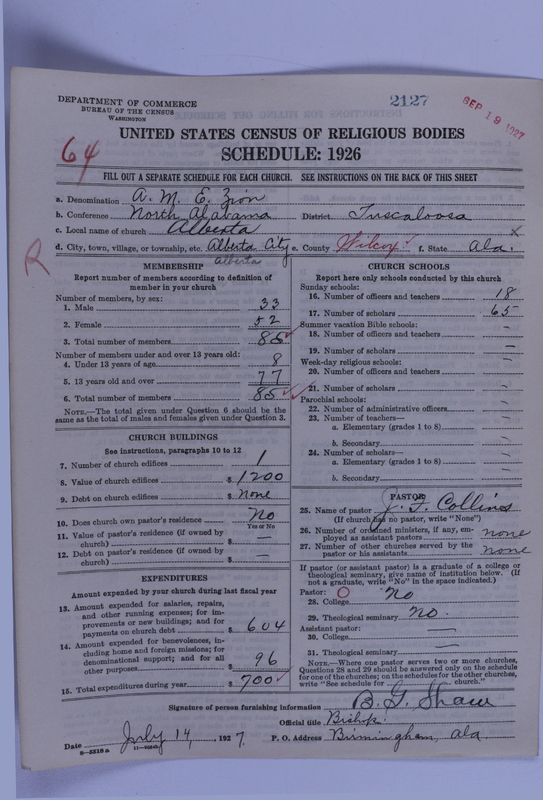 DEPARTMENT OF COMMERCE
BUREAU OF THE CENSUS
WASHINGTON
2127
SEP 19 1927
64
UNITED STATES CENSUS OF RELIGIOUS BODIES
SCHEDULE: 1926
FILL OUT A SEPARATE SCHEDULE FOR EACH CHURCH. SEE INSTRUCTIONS ON THE BACK OF THIS SHEET
a. Denomination A. M. E. Zion
b. Conference North Alabama District Tuscaloosa
c. Local name of church Alberta
d. City, town, village, or township, etc. Alberta City e. County Wilcox f. State Ala. x
Alberta
R
MEMBERSHIP
Report number of members according to definition of
member in your church
Number of members, by sex:
1. Male 33
2. Female 52
3. Total number of members 85
Number of members under and over 13 years old:
4. Under 13 years of age 8
5. 13 years old and over 77
6. Total number of members 85
NOTE.—The total given under Question 6 should be
same as the total of males and females given under Question 3.
CHURCH BUILDINGS
See instructions, paragraphs 10 to 12
7. Number of church edifices 1
8. Value of church edifices $ 1200
9. Debt on church edifices $ None
10. Does church own pastor's residence No
Yes or No
11. Value of pastor's residence (if owned by
church) $ —
12. Debt on pastor's residence (if owned by
church) $ —
EXPENDITURES
Amount expended by your church during last fiscal year
13. Amount expended for salaries, repairs,
and other running expenses; for im-
provements or new buildings; and for
payments on church debt $ 604
14. Amount expended for benevolences, in-
cluding home and foreign missions; for
denominational support; and for all
other purposes $ 96
15. Total expenditures during year $ 700
CHURCH SCHOOLS
Report here only schools conducted by this church
Sunday schools:
16. Number of officers and teachers 18
17. Number of scholars 65
Summer vacation Bible schools:
18. Number of officers and teachers —
19. Number of scholars —
Week-day religious schools:
20. Number of officers and teachers —
21. Number of scholars —
Parochial schools:
22. Number of administrative officers —
23. Number of teachers—
a. Elementary (grades 1 to 8) —
b. Secondary —
24. Number of scholars—
a. Elementary (grades 1 to 8) —
b. Secondary —
PASTOR
25. Name of pastor J. T. Collins
(If church has no pastor, write "None")
26. Number of ordained ministers, if any, em-
ployed as assistant pastors none
27. Number of other churches served by the
pastor or his assistants none
If pastor (or assistant pastor) is a graduate of a college or
theological seminary, give name of institution below. (If
not a graduate, write "No" in the space indicated.)
Pastor:
28. College No
29. Theological seminary No.
Assistant pastor:
30. College —
31. Theological seminary —
NOTE.—Where one pastor serves two or more churches,
Questions 28 and 29 should be answered only on the schedule
for one of the churches; on the schedules for the other churches,
write "See schedule for church."
Signature of person furnishing information B. G. Shaw
Official title Bishop
Date July 14, 1927. P. O. Address Birmingham, Ala
8—5318 a